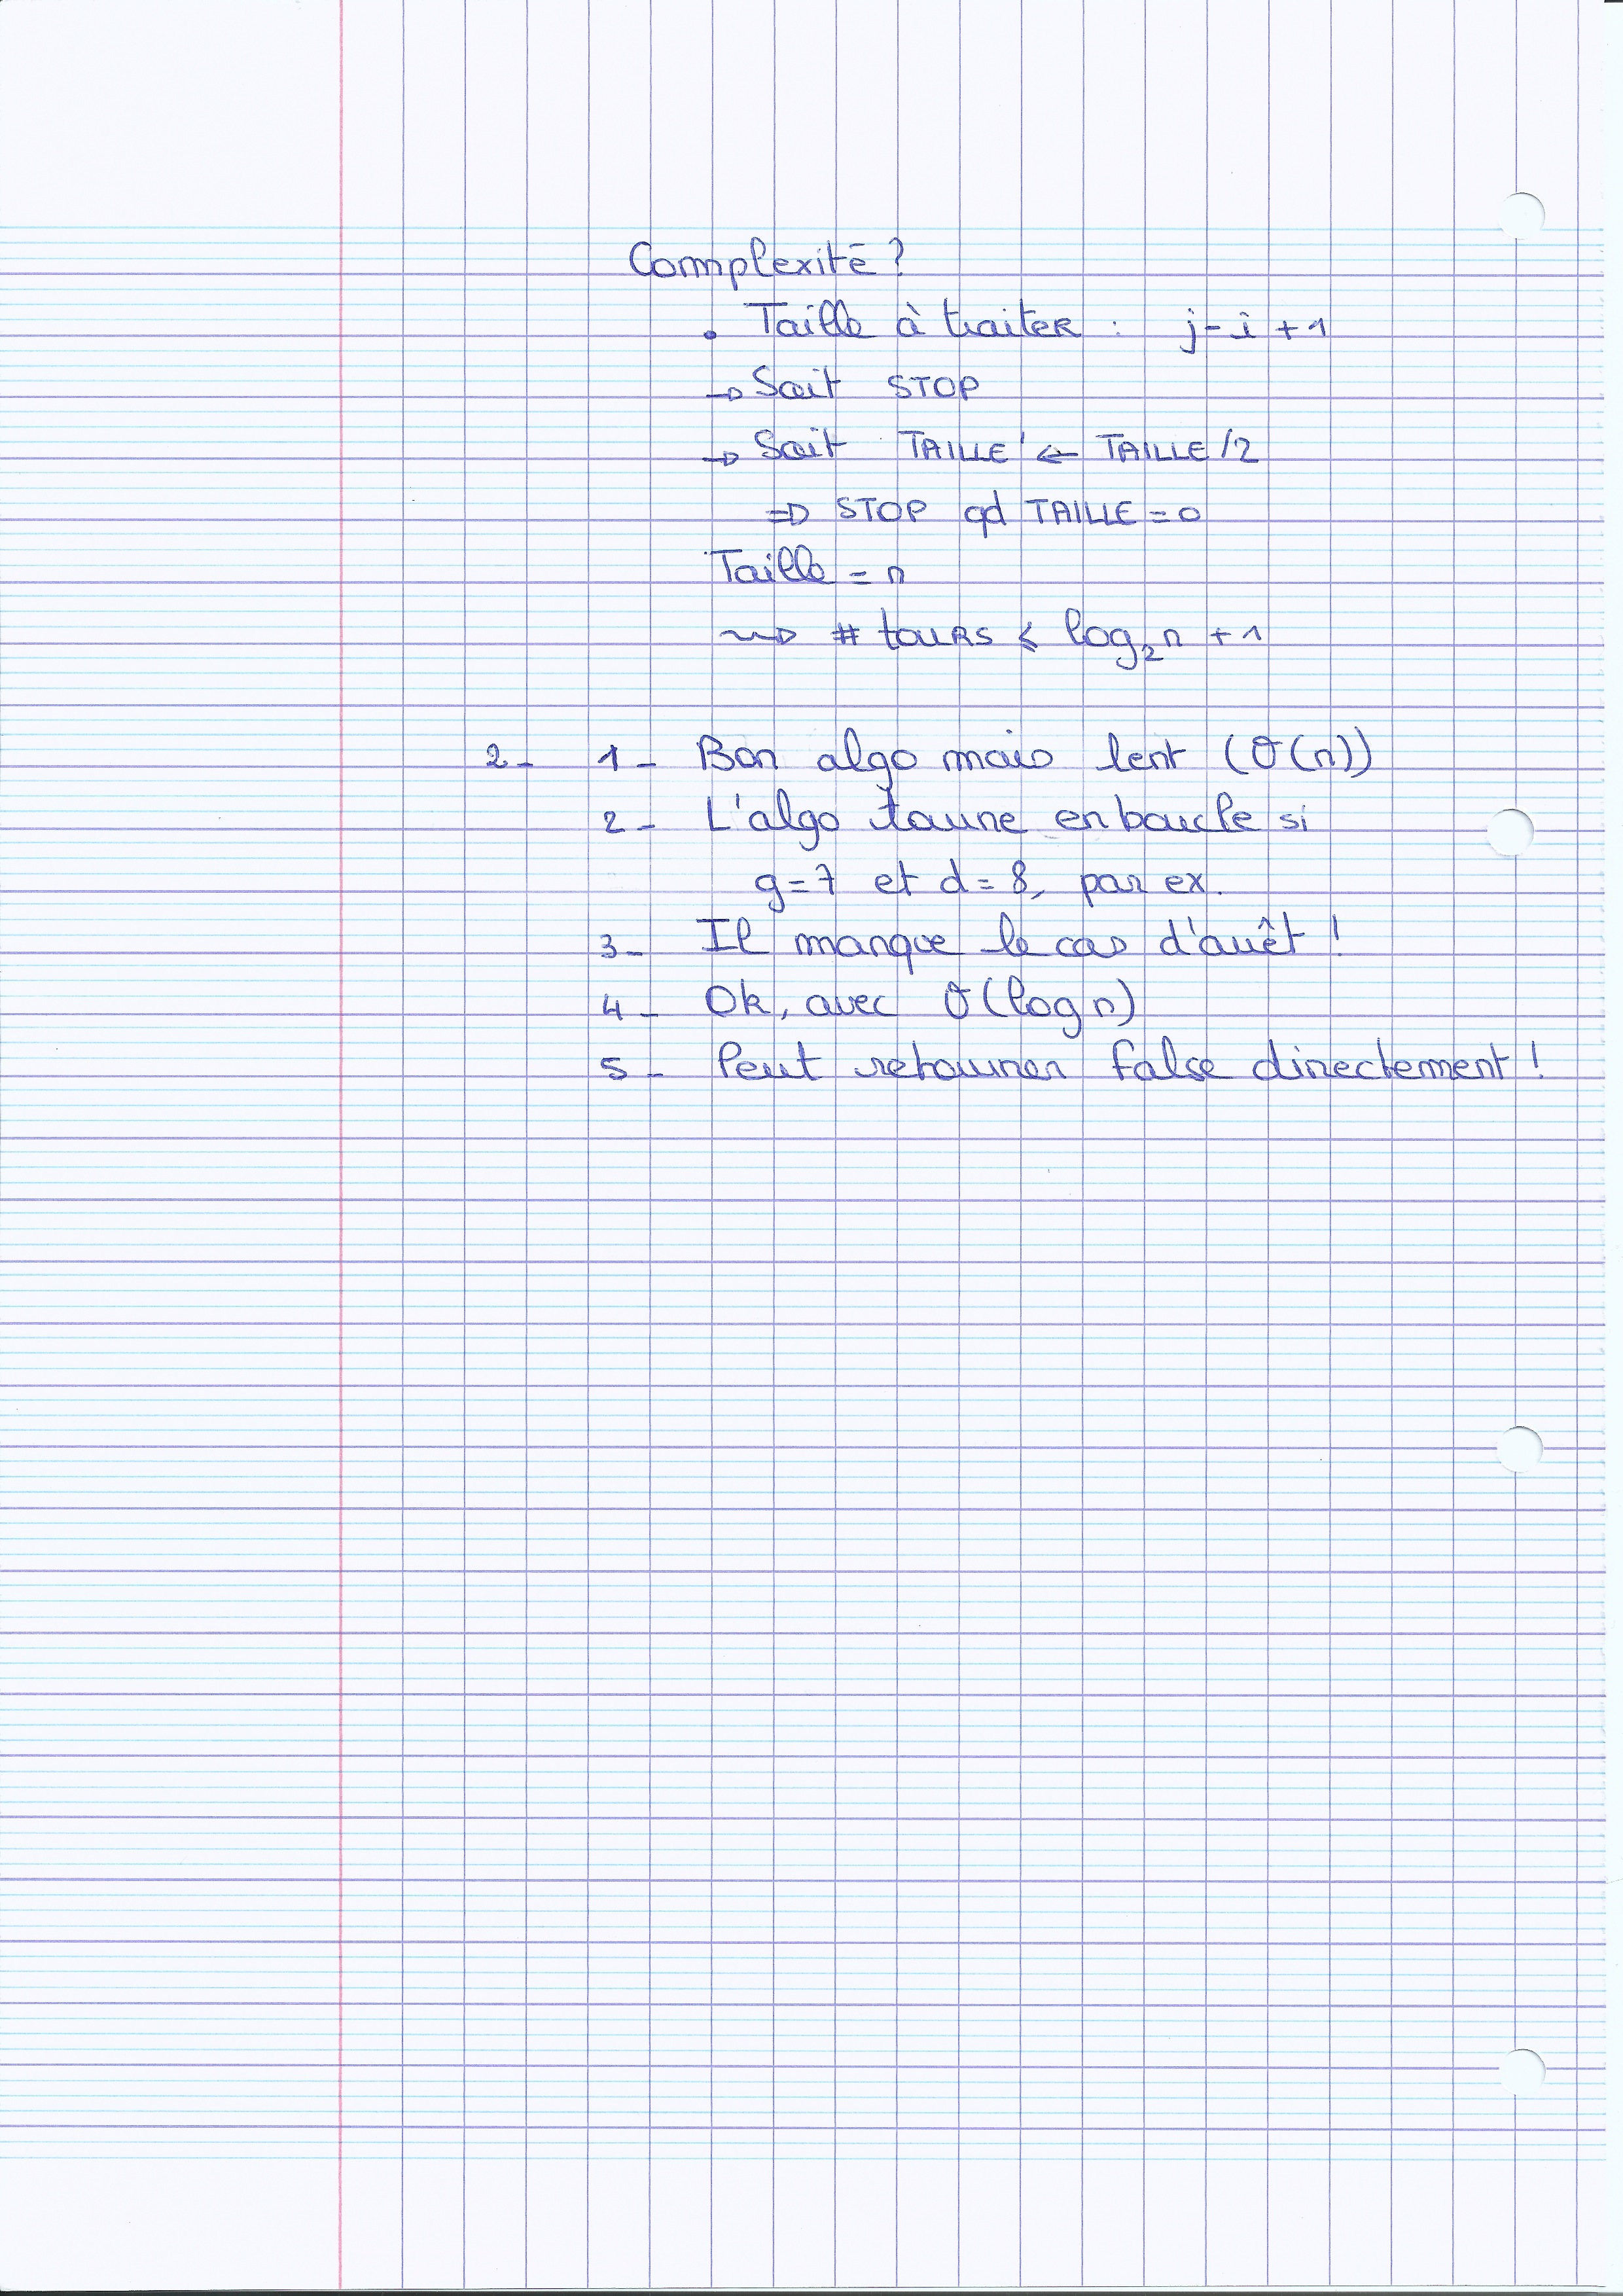 Complexité ?
. Taille à traiter : j-i+1
→ Soit STOP
→ Soit TAILLE' ← TAILLE/2
⇒ STOP qd TAILLE = 0
Taille = n
⇝ # tours ⩽ log₂n + 1
2- 1- Bon algo mais lent (O(n))
2- L'algo tourne en boucle si
g=7 et d=8, par ex.
3- Il manque le cas d'arrêt !
4- Ok, avec O(log n)
5- Peut retourner false directement !